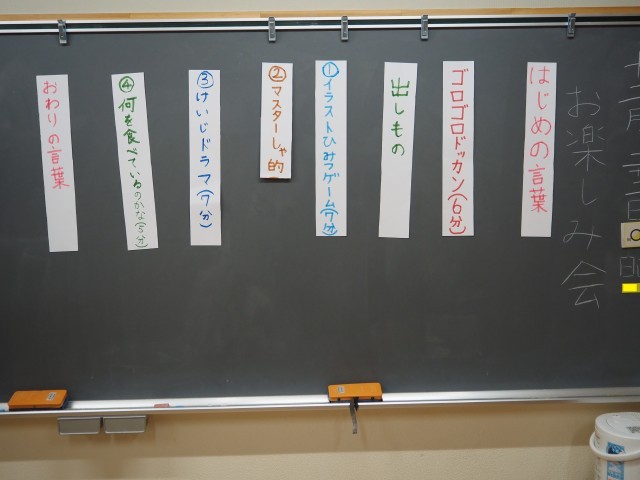 お楽しみ会
はじめの言葉
ゴロゴロドッカン(6分)
出しもの
①イラストひみつゲーム(7分)
②マスターしゃ的
③けいじドラマ(7分)
④何を食べているのかな(5分)
おわりの言葉